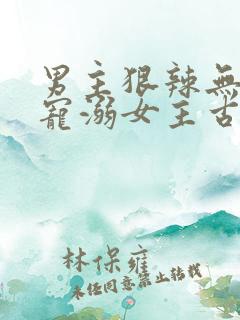 男主狠辣無
寵溺女主古
林保雍
未经同意禁止转载